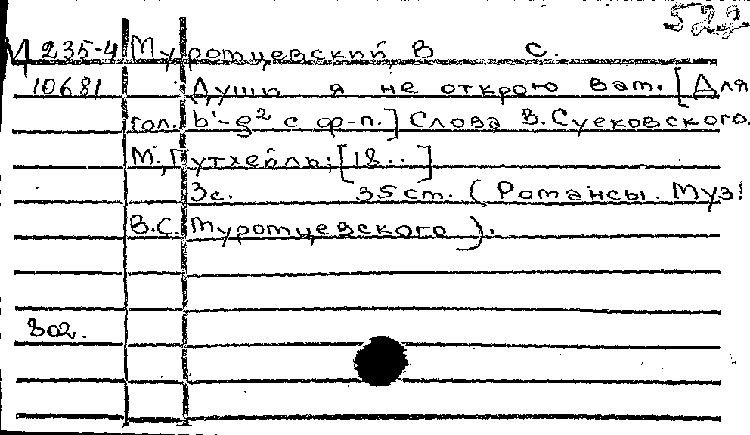 522
И 235-4 Муромцевский В С.
10681 Души я не открою вам. [Для
гол. b'-g² с ф-п.] Слова В.Суековского.
М., Гутхейль; [18..]
3с. 35ст. (Романсы. Муз.
В.С. Муромцевского).
802.